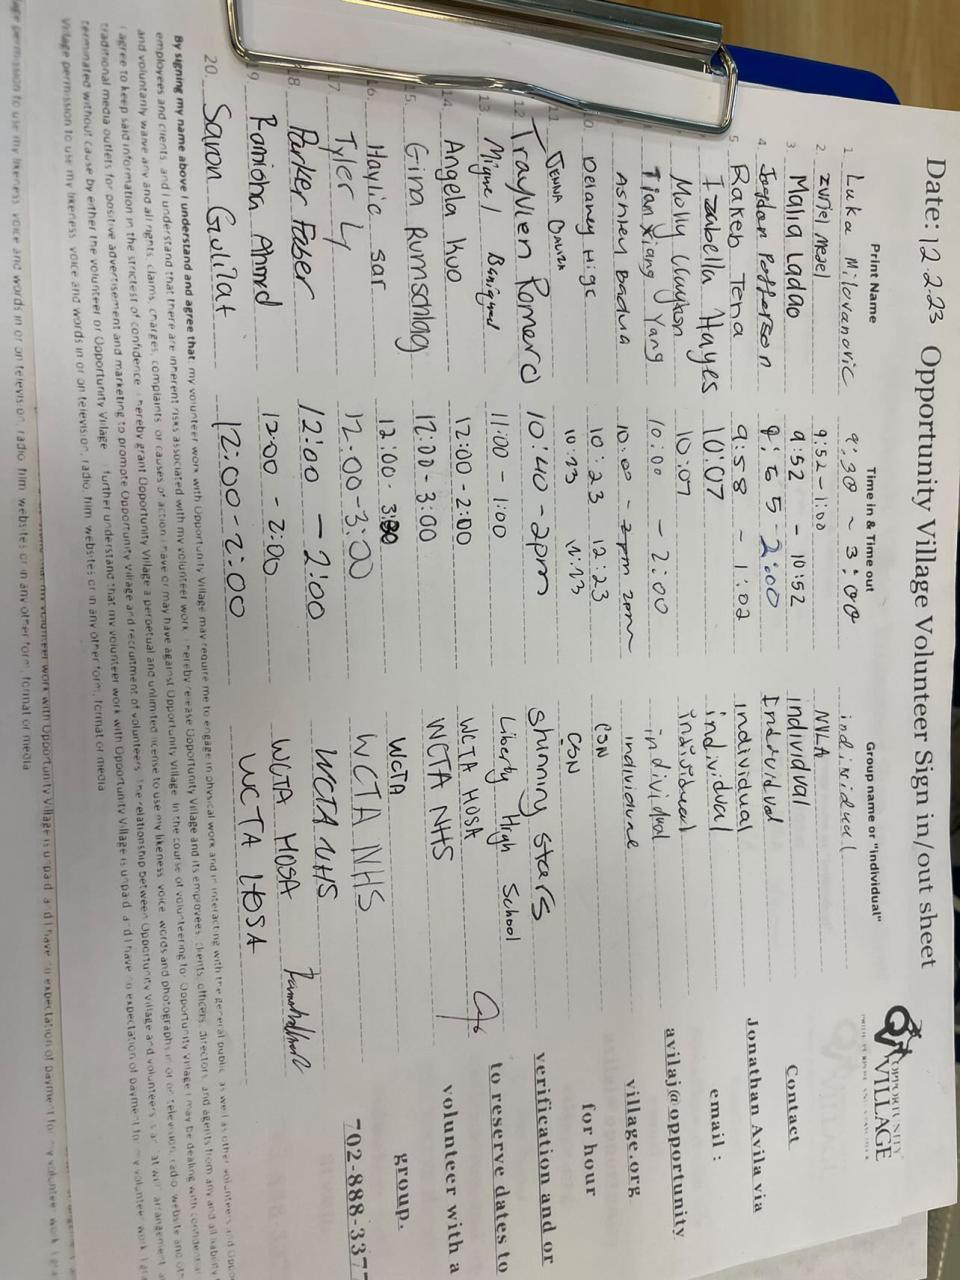 Date: 12.2.23 Opportunity Village Volunteer Sign in/out sheet
Print Name Time in & Time out Group name or "Individual"
1. Luka Milovanovic 9:30 ~ 3:00 individual
2. zuriel 9:52-1:00 NVLA
3. Malia Ladao 9:52 - 10:52 Individual
4. 2:00 Individual
5 Rakeb Tena 9:58 - 1:02 individual
Izabella Hayes 10:07 individual
Molly Clayton 10:07 individual
Tian Xiang Yang 10:00 - 2:00 individual
Ashney Badua 10:00 - 2pm 2pm individual
10 Delaney Hige 10:23 12:23 CSN
11 Jenna 10:23 12:23 CSN
12 Trayvien Romero 10:40 - 2pm Shinning Stars
13 Miguel 11:00 - 1:00 Liberty High School
14 Angela Kuo 12:00-2:00 WCTA HOSA
15. Gina Rumschlag 12:00 - 3:00 WCTA NHS
16 Haylie Sar 12:00-3:00 WCTA
17 Tyler Ly 12:00-3:00 WCTA NHS
18 Parker Faber 12:00 - 2:00 WCTA NHS
19 Ramisha Ahmed 12:00 - 2:00 WCTA HOSA
20. Saron Gulilat 12:00-2:00 WCTA HOSA
OPPORTUNITY
VILLAGE
Contact
Jonathan Avila via
email :
avilaj@opportunity
village.org
for hour
verification and or
to reserve dates to
volunteer with a
group.
702-888-337
By signing my name above I understand and agree that my volunteer work with Opportunity Village may require me to engage in physical work and in interacting with the general public as well as other volunteers and Oppo
employees and clients, and I understand that there are inherent risks associated with my volunteer work. I hereby release Opportunity Village and its employees, clients, officers, directors and agents from any and all liability
and voluntarily waive any and all rights, claims, charges, complaints or causes of action I have or may have against Opportunity Village. In the course of volunteering for Opportunity Village I may be dealing with confidential
I agree to keep said information in the strictest of confidence. I hereby grant Opportunity Village a perpetual and unlimited license to use my likeness, voice, words and photographs in or on television, radio, website and
traditional media outlets for positive advertisement and marketing to promote Opportunity Village and recruitment of volunteers. The relationship between Opportunity Village and volunteers is at will arrangement
terminated without cause by either the volunteer or Opportunity Village. I further understand that my volunteer work with Opportunity Village is unpaid and I have no expectation of payment for my volunteer work. I
Village permission to use my likeness, voice and words in or on television, radio, film, websites or in any other form, format or media
my volunteer work with Opportunity Village is unpaid and I have no expectation of payment for my volunteer work. I
permission to use my likeness, voice and words in or on television, radio, film, websites or in any other form, format or media